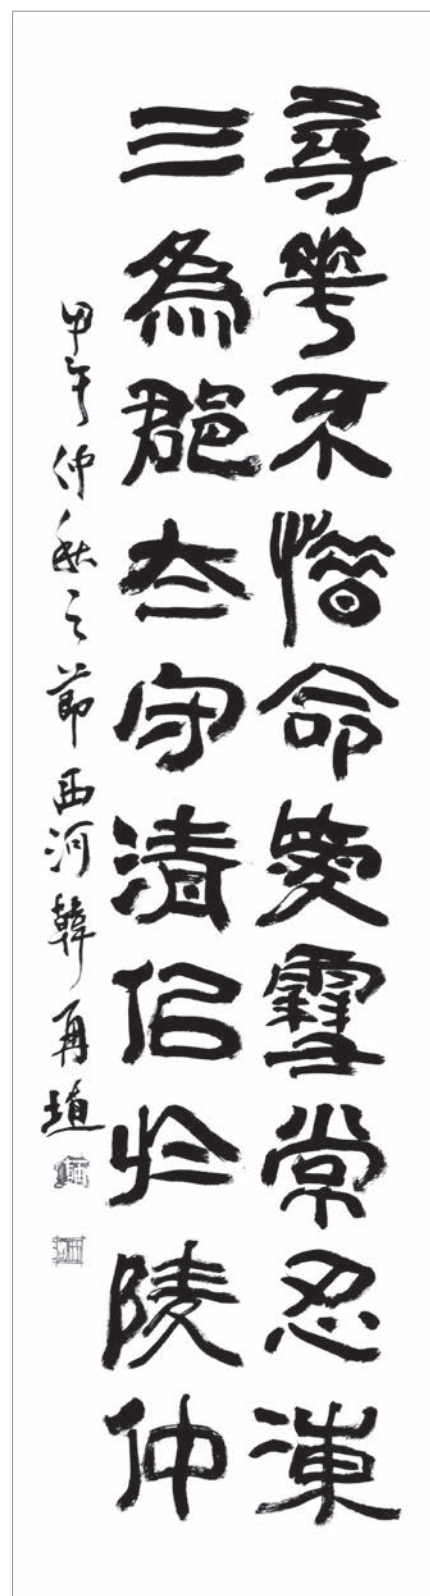 尋花不惜命愛雪常忍凍
三為郡太守清佀於陵仲
甲午仲秋之節西河韓再埴